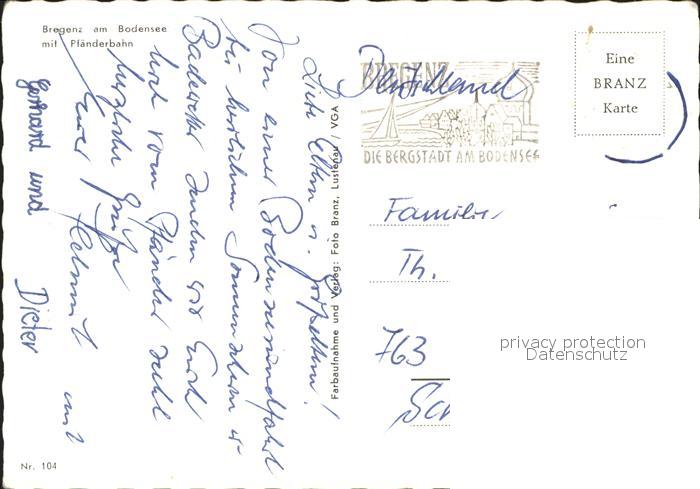 Bregenz am Bodensee
mit Pfänderbahn
Liebe Eltern u. Großeltern!
Von einer Bodenseerundfahrt
bei herrlichem Sonnenschein u.
Badewetter senden wir Euch
hoch vom Pfänder
herzliche Grüße
Euer Helmut mit
Gerhard und Dieter
Nr. 104
Farbaufnahme und Verlag: Foto Branz, Lustenau / VGA
BREGENZ
DIE BERGSTADT AM BODENSEE
Deutschland
Eine
BRANZ
Karte
Familie
Th.
763
privacy protection
Datenschutz